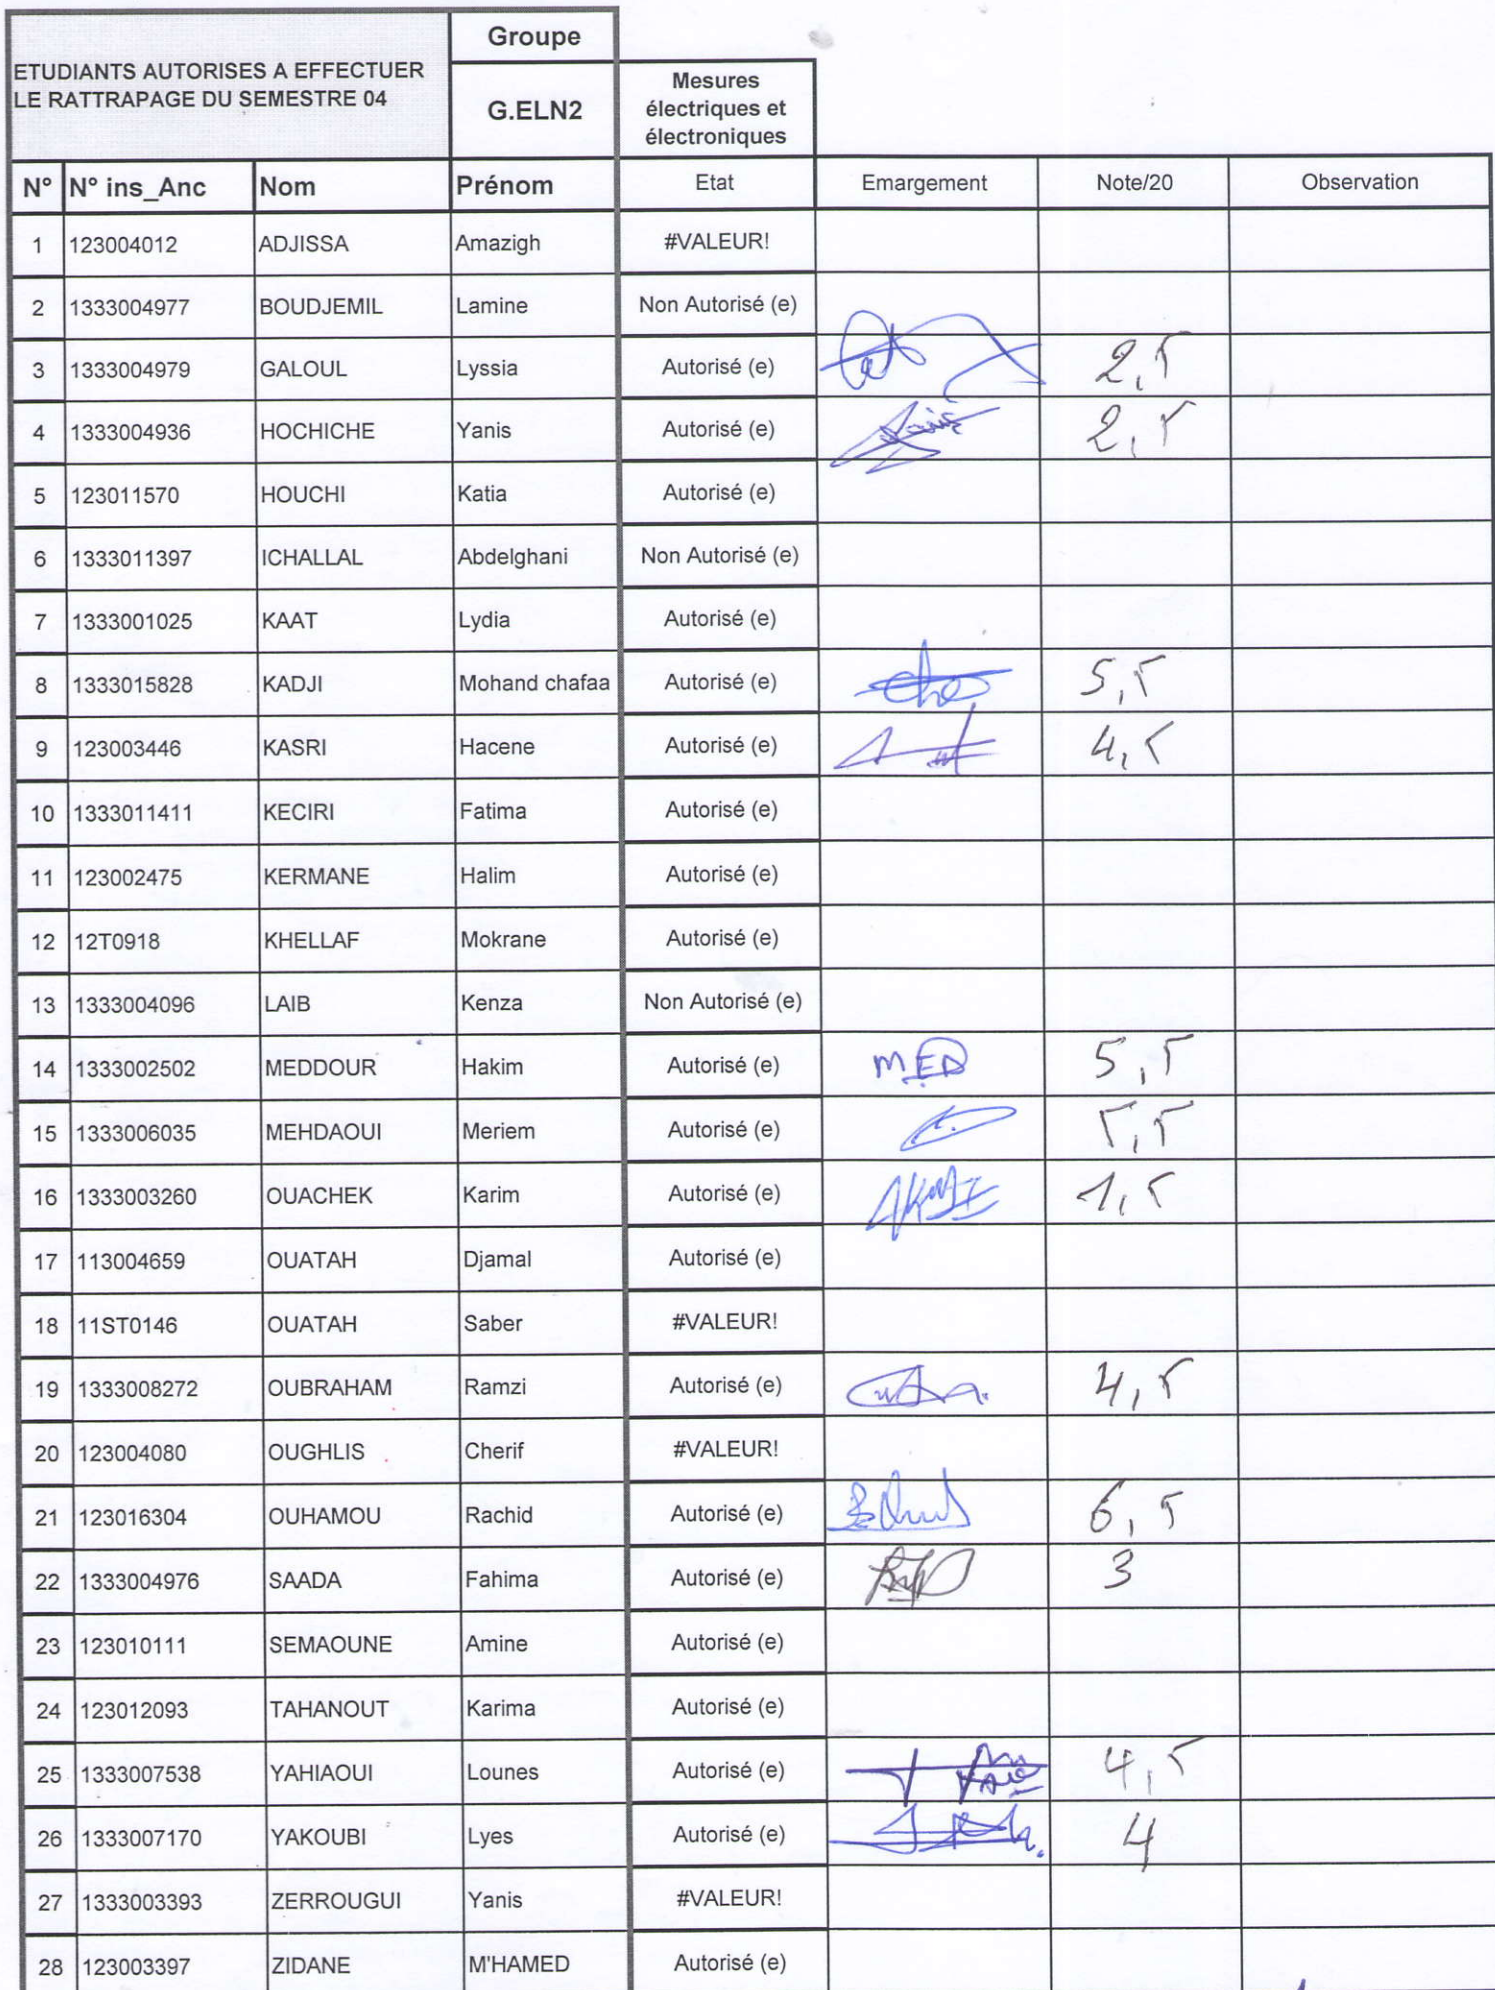 ETUDIANTS AUTORISES A EFFECTUER
LE RATTRAPAGE DU SEMESTRE 04
Groupe
G.ELN2
Mesures
électriques et
électroniques
N° N° ins_Anc Nom Prénom Etat Emargement Note/20 Observation
1 123004012 ADJISSA Amazigh #VALEUR!
2 1333004977 BOUDJEMIL Lamine Non Autorisé (e)
3 1333004979 GALOUL Lyssia Autorisé (e) 2,5
4 1333004936 HOCHICHE Yanis Autorisé (e) 2,5
5 123011570 HOUCHI Katia Autorisé (e)
6 1333011397 ICHALLAL Abdelghani Non Autorisé (e)
7 1333001025 KAAT Lydia Autorisé (e)
8 1333015828 KADJI Mohand chafaa Autorisé (e) 5,5
9 123003446 KASRI Hacene Autorisé (e) 4,5
10 1333011411 KECIRI Fatima Autorisé (e)
11 123002475 KERMANE Halim Autorisé (e)
12 12T0918 KHELLAF Mokrane Autorisé (e)
13 1333004096 LAIB Kenza Non Autorisé (e)
14 1333002502 MEDDOUR Hakim Autorisé (e) MED 5,5
15 1333006035 MEHDAOUI Meriem Autorisé (e) 5,5
16 1333003260 OUACHEK Karim Autorisé (e) 1,5
17 113004659 OUATAH Djamal Autorisé (e)
18 11ST0146 OUATAH Saber #VALEUR!
19 1333008272 OUBRAHAM Ramzi Autorisé (e) 4,5
20 123004080 OUGHLIS Cherif #VALEUR!
21 123016304 OUHAMOU Rachid Autorisé (e) 6,5
22 1333004976 SAADA Fahima Autorisé (e) 3
23 123010111 SEMAOUNE Amine Autorisé (e)
24 123012093 TAHANOUT Karima Autorisé (e)
25 1333007538 YAHIAOUI Lounes Autorisé (e) 4,5
26 1333007170 YAKOUBI Lyes Autorisé (e) 4
27 1333003393 ZERROUGUI Yanis #VALEUR!
28 123003397 ZIDANE M'HAMED Autorisé (e)